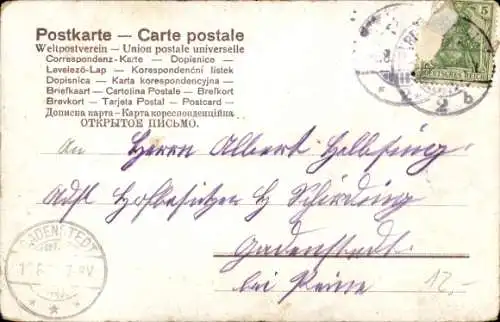 Postkarte — Carte postale
Weltpostverein — Union postale universelle
Correspondenz-Karte — Dopisnice
Levelező-Lap — Korespondenční lístek
Dopisnica — Karta korespondencyjna
Briefkaart — Cartolina Postale — Brefkort
Brevkort — Tarjeta Postal — Postcard
Дописна карта — Карта кореспонденційна
ОТКРЫТОЕ ПИСЬМО.
5
DEUTSCHES REICH
2 b
An Herrn Albert Helbsing
Hofbesitzer H Schirding
Gadenstedt
bei Peine
12,-
GADENSTEDT